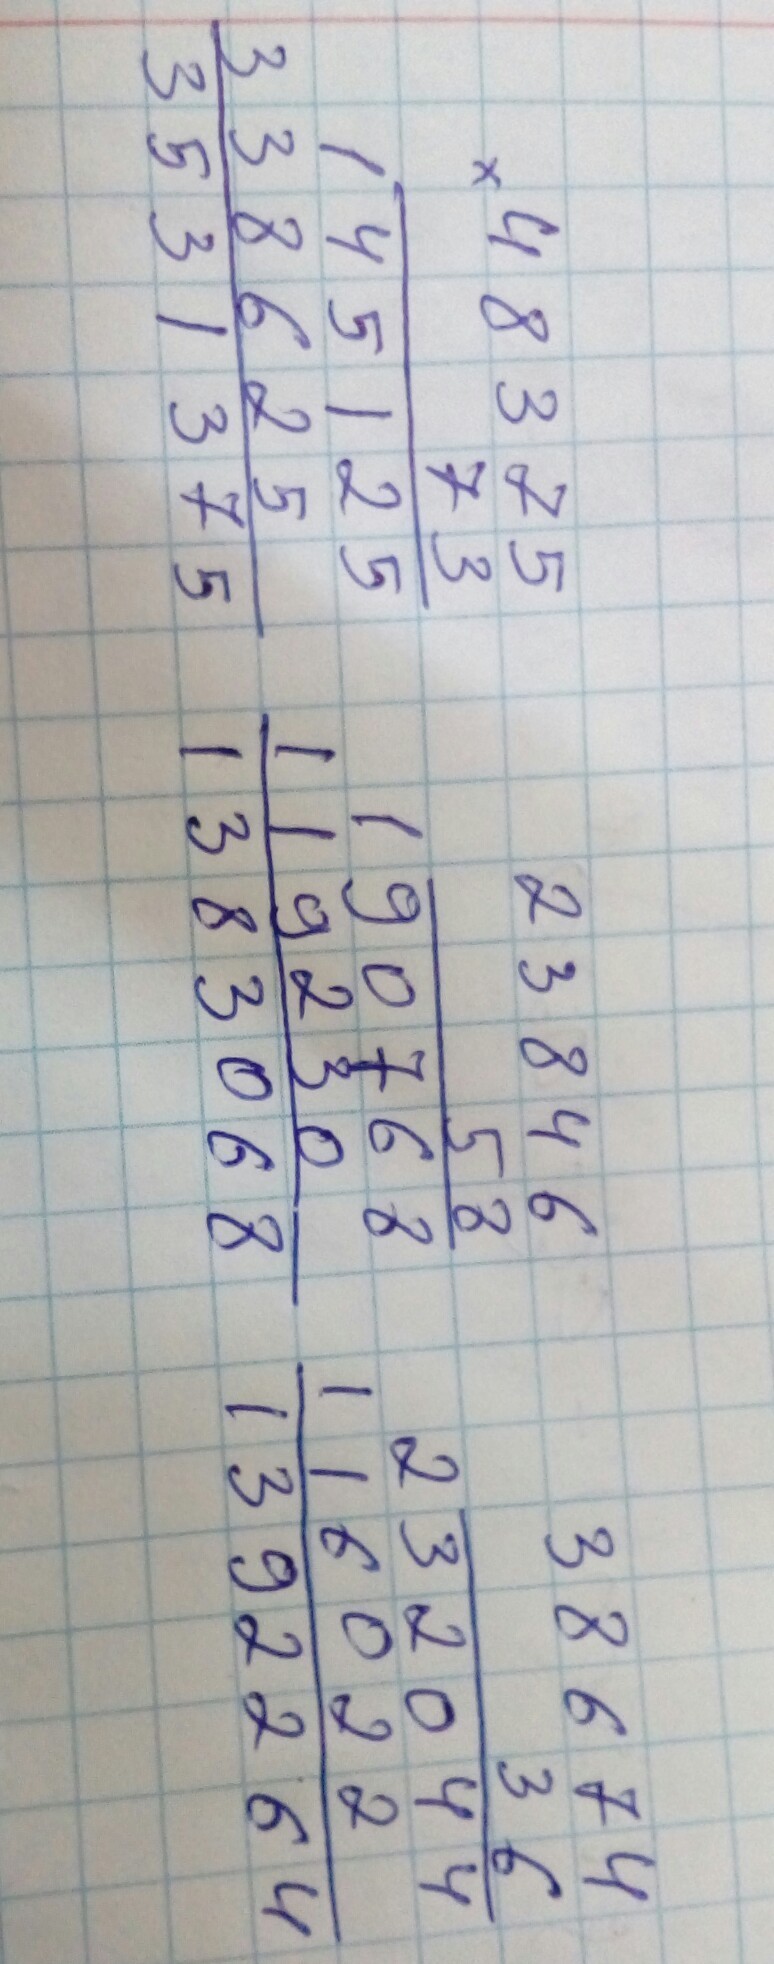 × 48375
73
145125
338625
3531375
23846
58
190768
119230
1383068
38674
36
232044
116022
1392264